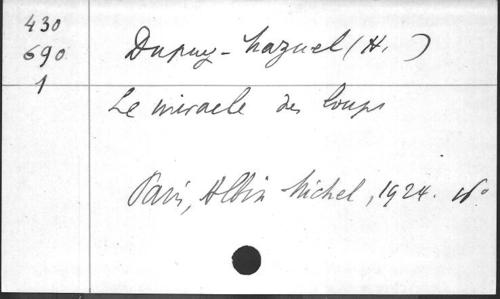 430
690
1
Dupuy-Mazuel (H. )
Le miracle des loups
Paris, Albin Michel, 1924. in 16°